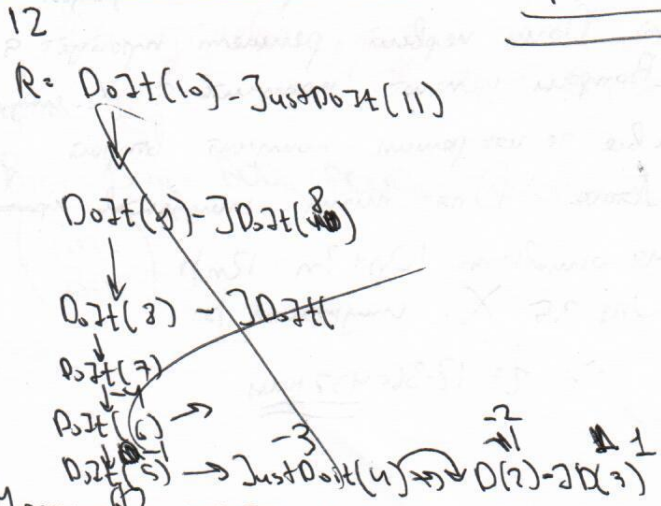 12
R= DoIt(10) - JustDoIt(11)
DoIt(9) - JDoIt(8)
DoIt(8) - JDoIt(
DoIt(7)
DoIt(6) →
DoIt(5) → JustDoIt(4) → D(2) - JD(3) 1
-3
-2
-1